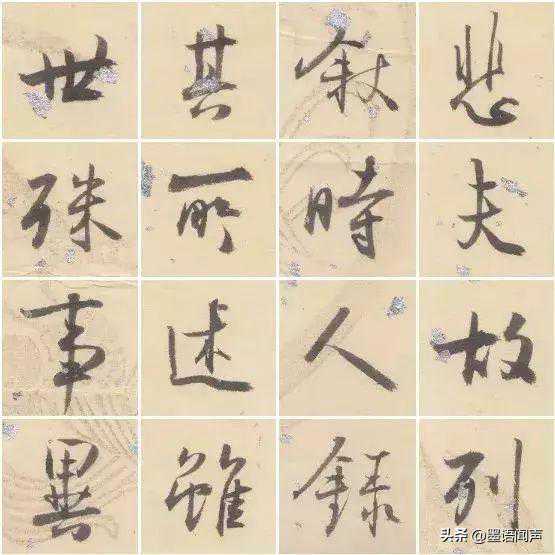 悲夫故列
敘時人錄
其所述雖
世殊事異
头条 @墨语闻声